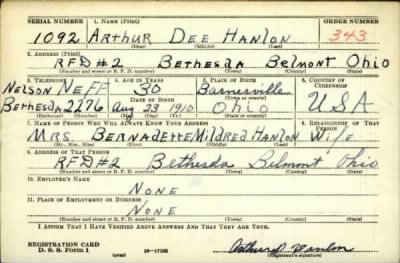 SERIAL NUMBER 1. NAME (Print) ORDER NUMBER
1092 ARTHUR DEE HANLON 343
(First) (Middle) (Last)
2. ADDRESS (Print)
RFD#2 BETHESDA BELMONT OHIO
(Number and street or R. F. D. number) (Town) (County) (State)
3. TELEPHONE 4. AGE IN YEARS 5. PLACE OF BIRTH 6. COUNTRY OF CITIZENSHIP
NELSON NEFF 30 Barnesville
DATE OF BIRTH (Town or county)
Bethesda 2276 Aug 23 1910 Ohio USA
(Exchange) (Number) (Mo.) (Day) (Yr.) (State or country)
7. NAME OF PERSON WHO WILL ALWAYS KNOW YOUR ADDRESS 8. RELATIONSHIP OF THAT PERSON
MRS. BERNADETTE MILDRED HANLON Wife
(Mr., Mrs., Miss) (First) (Middle) (Last)
9. ADDRESS OF THAT PERSON
RFD#2 Bethesda Belmont Ohio
(Number and street or R. F. D. number) (Town) (County) (State)
10. EMPLOYER'S NAME
NONE
11. PLACE OF EMPLOYMENT OR BUSINESS
NONE
(Number and street or R. F. D. number) (Town) (County) (State)
I AFFIRM THAT I HAVE VERIFIED ABOVE ANSWERS AND THAT THEY ARE TRUE.
REGISTRATION CARD
D. S. S. Form 1 (over) 16—17105 Arthur D Hanlon
(Registrant's signature)